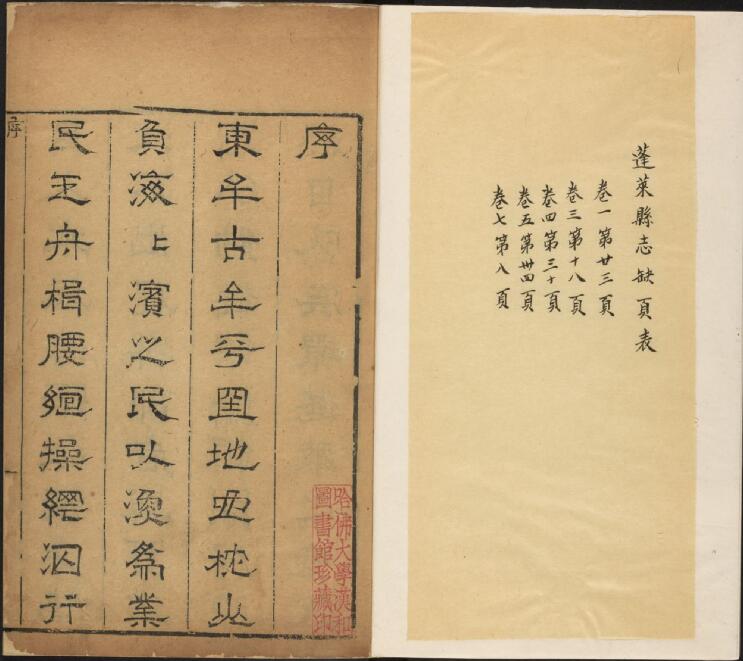 蓬萊縣志缺頁表
卷一第廿三頁
卷三第十八頁
卷四第三十頁
卷五第卅四頁
卷七第八頁
序
東牟古牟平地枕山
負海〻濱之民以漁為業
民舟楫腰絙操網泅行
序
哈佛大學漢和
圖書館珍藏印